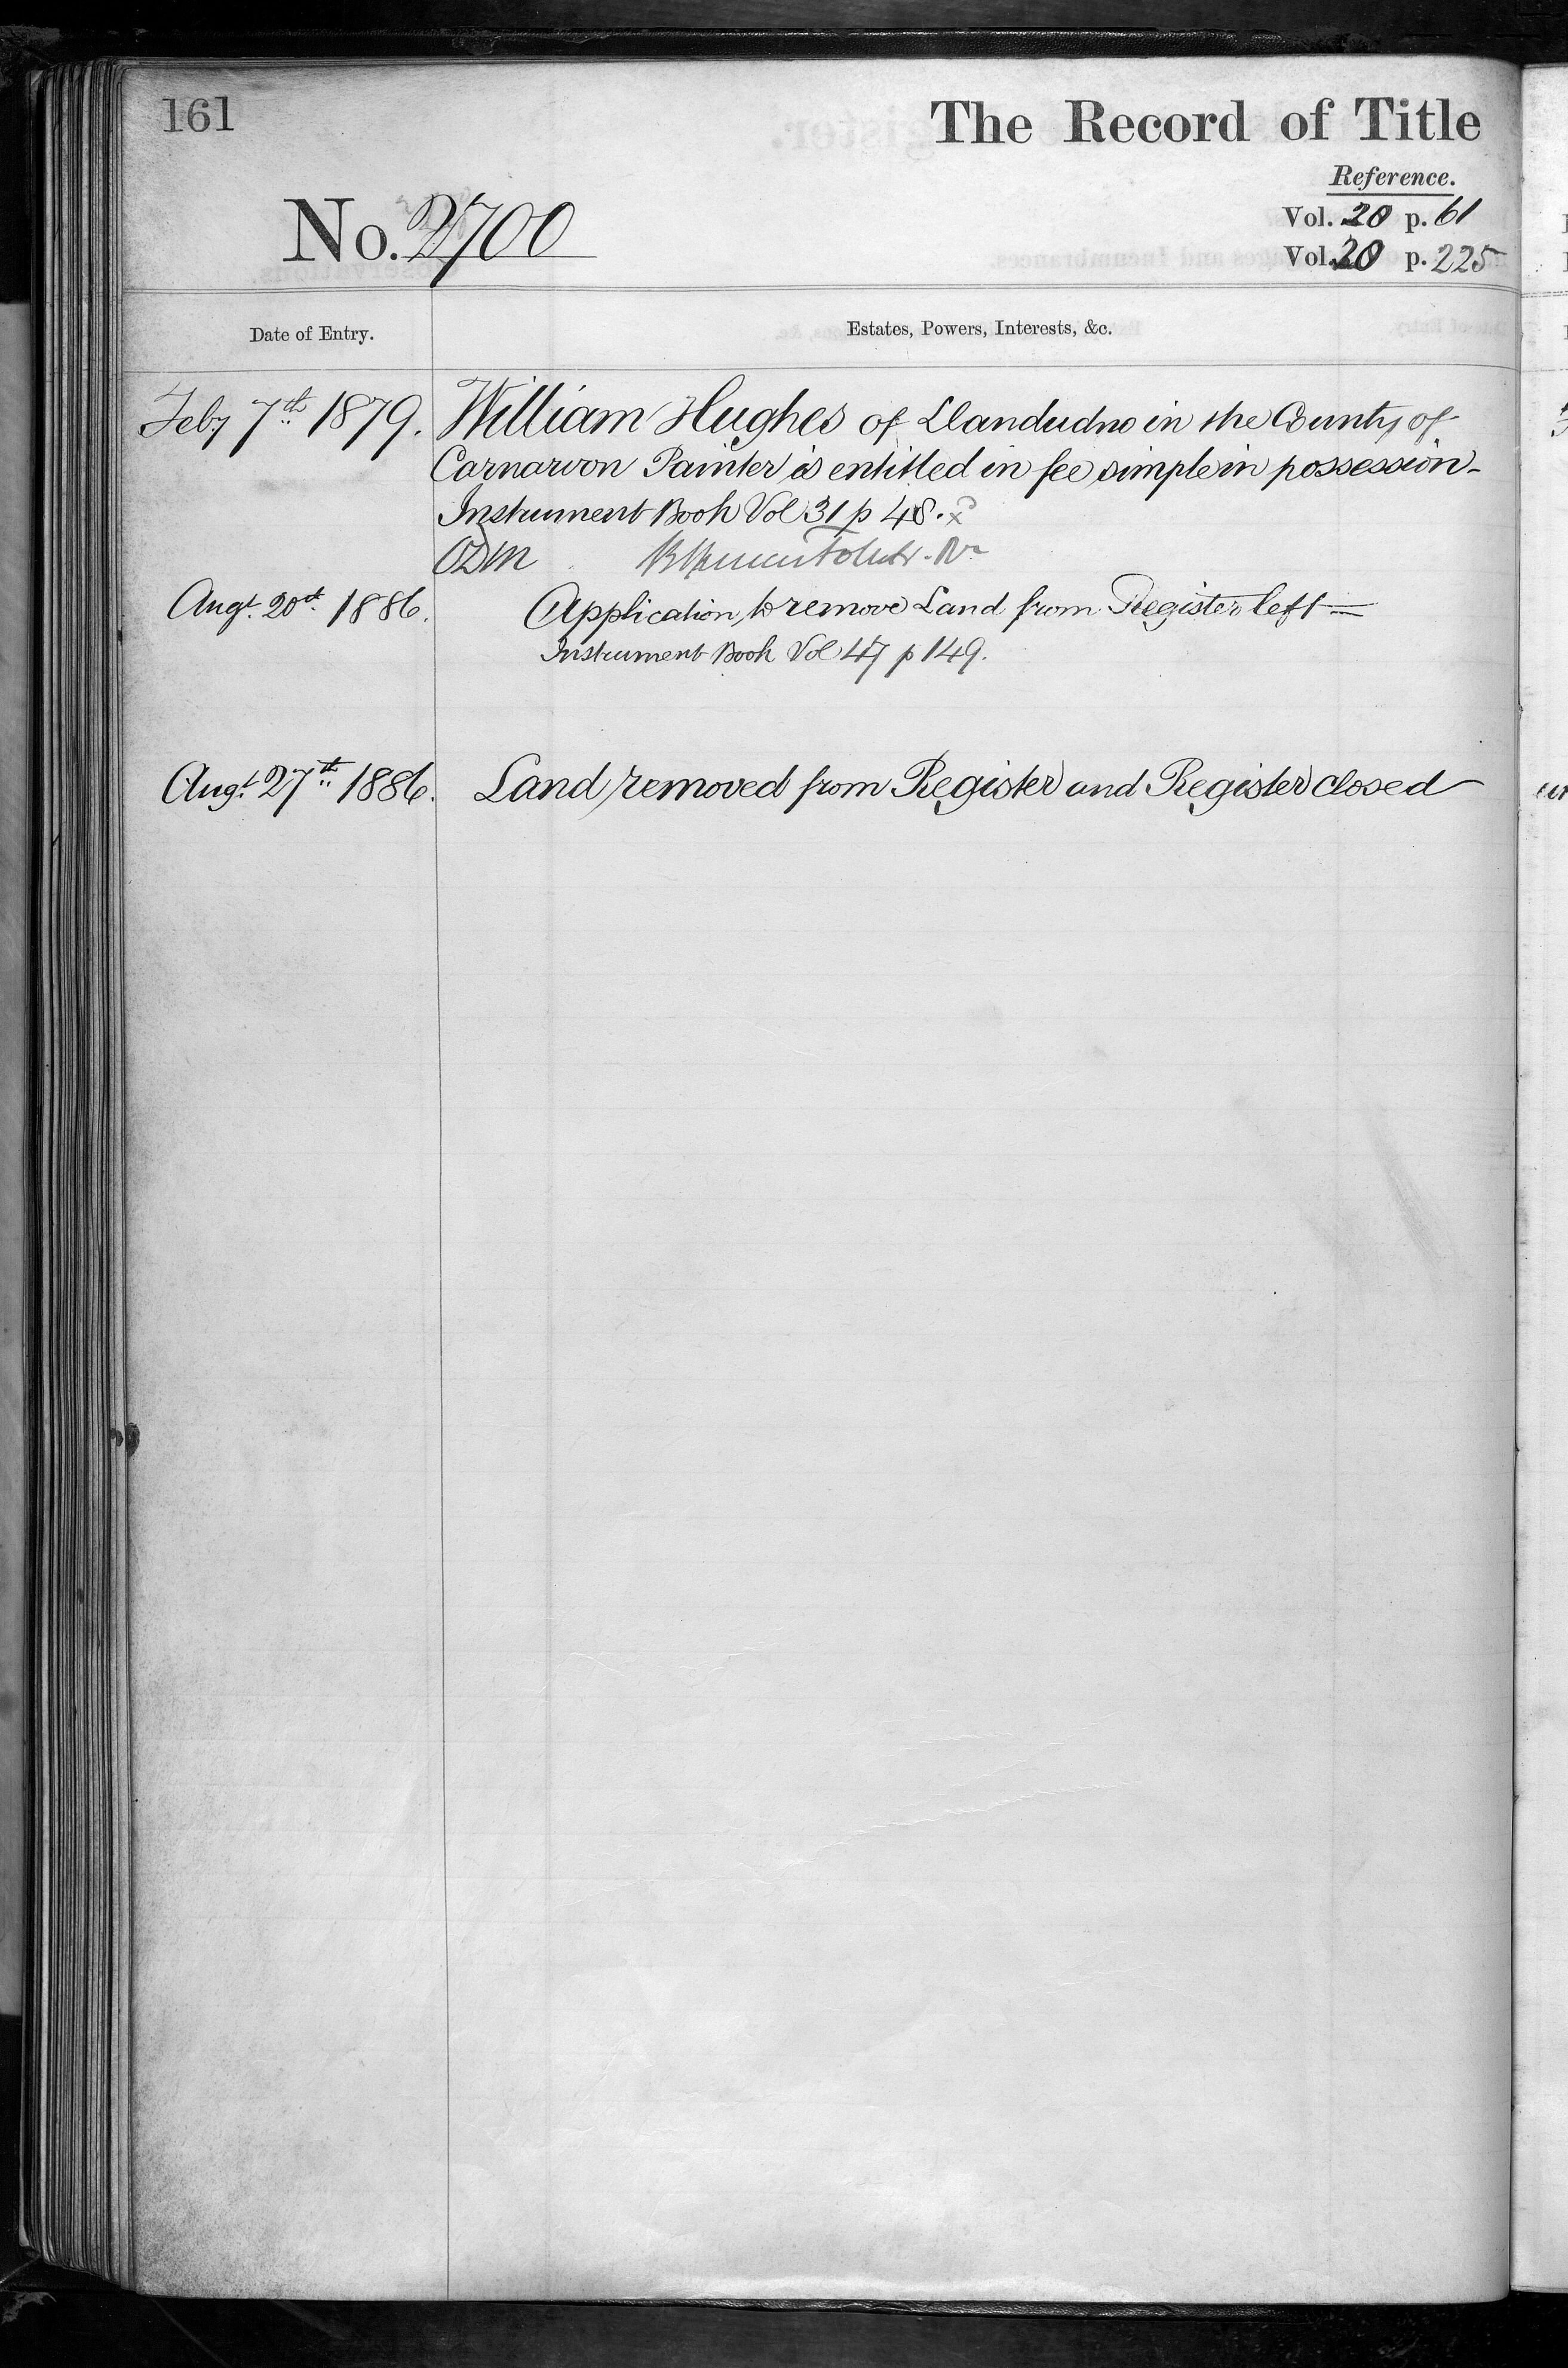 161
The Record of Title
Reference.
No. 2700
Vol. 20 p. 61
Vol. 20 p. 225
Date of Entry.
Estates, Powers, Interests, &c.
Feby 7th 1879. William Hughes of Llandudno in the County of
Carnarvon Painter is entitled in fee simple in possession-
Instrument Book Vol 31 p 48.
Augt. 20th. 1886. Application to remove Land from Register left =
Instrument Book Vol 47 p 149.
Augt. 27th 1886. Land removed from Register and Register closed